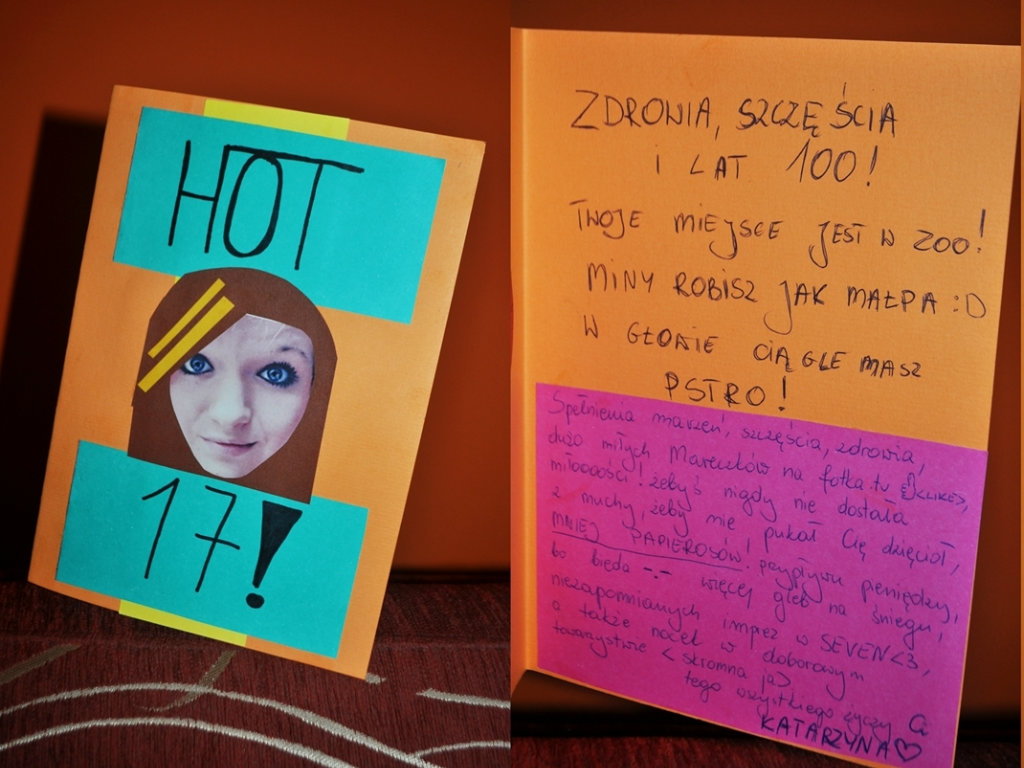 HOT
17!
ZDROWIA, SZCZĘŚCIA
I LAT 100!
TWOJE MIEJSCE JEST W ZOO!
MINY ROBISZ JAK MAŁPA :D
W GŁOWIE CIĄGLE MASZ
PSTRO!
Spełnienia marzeń, szczęścia, zdrowia,
dużo miłych Mareczków na fotka.tv <KLIKE>,
miłoooości! żebyś nigdy nie dostała
z muchy, żeby nie pukał Cię dzięcioł,
MNIEJ PAPIEROSÓW! przypływu pieniędzy,
bo bieda -.- więcej gleb na śniegu,
niezapomnianych imprez w SEVEN <3,
a także nocek w doborowym
towarzystwie < skromna ja>
tego wszystkiego życzy Ci
KATARZYNA♡